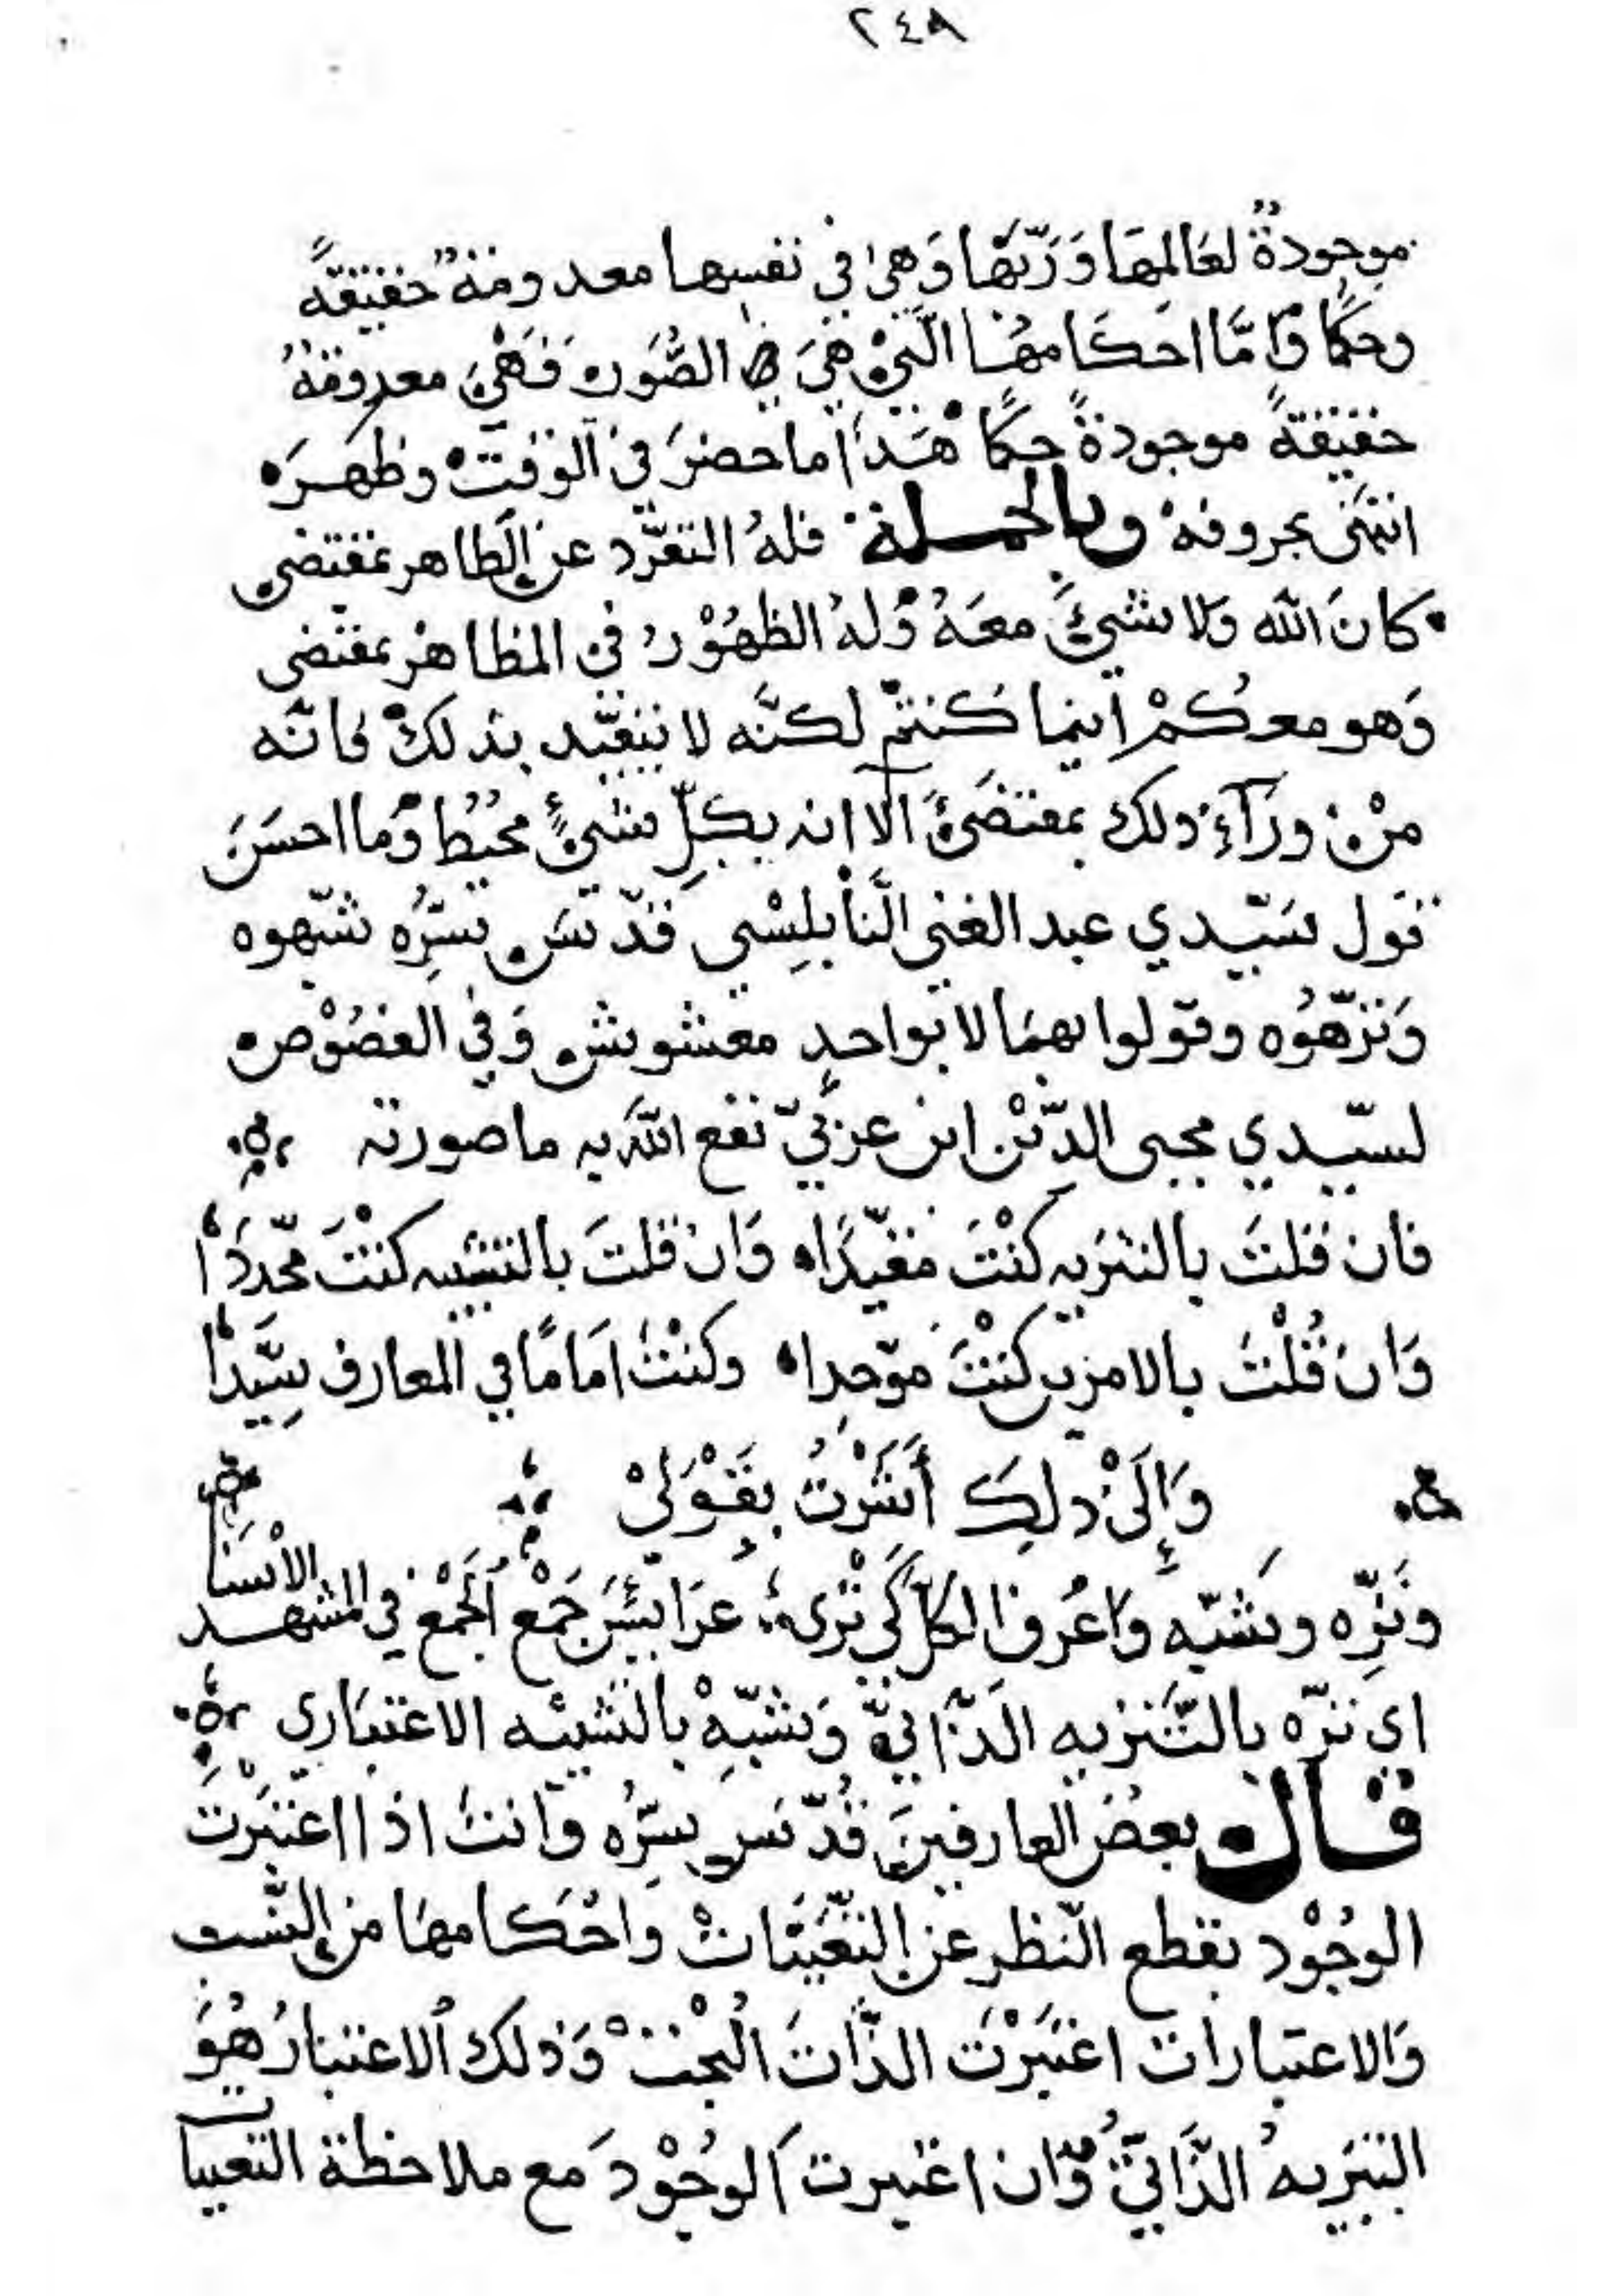 ٢٤٩
موجودةٌ لعَالِمِهَا وَرَبِّهَا وَهِيَ في نفسِها معدومَةٌ حَقِيقةً
وحكمًا وَأمَّا احكَامهَا الَّتِيْ هِيَ الصُّوَر فَهْيَ معدومَةٌ
حقيقةً موجودةً حكمًا هَذَا ما حضرَ في الوقتْ وظهَرَ
انتهَى بحروفهْ وبالجملة فلهُ التعرّد عن الظاهر بمقتضى
كانَ الله وَلا شيءَ معَهُ وَلهُ الظهُوْرُ في المظاهرْ بمقتضى
وَهو معكُمْ اينما كُنتمْ لكنَّه لا يتقيَّد بذلكْ فانّه
مِنْ ورَآءِ ذلك بمقتضَى الا انه بكلِّ شيءٍ محيْطُ وَما احسَنَ
قول سَيّدي عبد الغني النَّابلِسْي قدّسَ سرُّه شبّهوه
وَنزّهُوه وقولوا بهمَا لا بواحدٍ مغشوش وَفي الفصُوْص
لسيّدي محيى الدّيْن ابن عربيّ نفع اللّه به ما صورته
فان قلتَ بالتنزيه كنْتَ مقيّدًا وَان قلتَ بالتشبيه كنتَ محّددَا
وَان قُلْتَ بالامرين كنْتَ موّحدا وكنْتَ امَامًا في المعارف سيّدَا
وَإِلَىْ ذلِكَ أَشَرْتُ بِقَوْلِيْ
ونَزِّه وشبّه وَاعْرف الكلّ كَيْ تْرى عرَائسَ جَمْع الجَمْع في المشهد الاسنَا
اي نزّه بالتَّنزيه الذّاتيّ وَشبّهْ بالتشبيْه الاعتبَاري
قال بعضُ العارفينَ قُدّسَ سرُّه وَانتَ اذا اعْتبَرْتَ
الوجُوْد بقطع النّظر عن التّعَيّنَاتْ وَاحْكامهَا من النّسب
وَالاعتبارات اعْتبَرْتَ الذّاتَ الْبحْتْ وَذلك الاعتبارُ هُوَ
التنزيهُ الذَّاتيّ وّان اعتبرت الوجُوْدَ مع ملاحظة التعينات